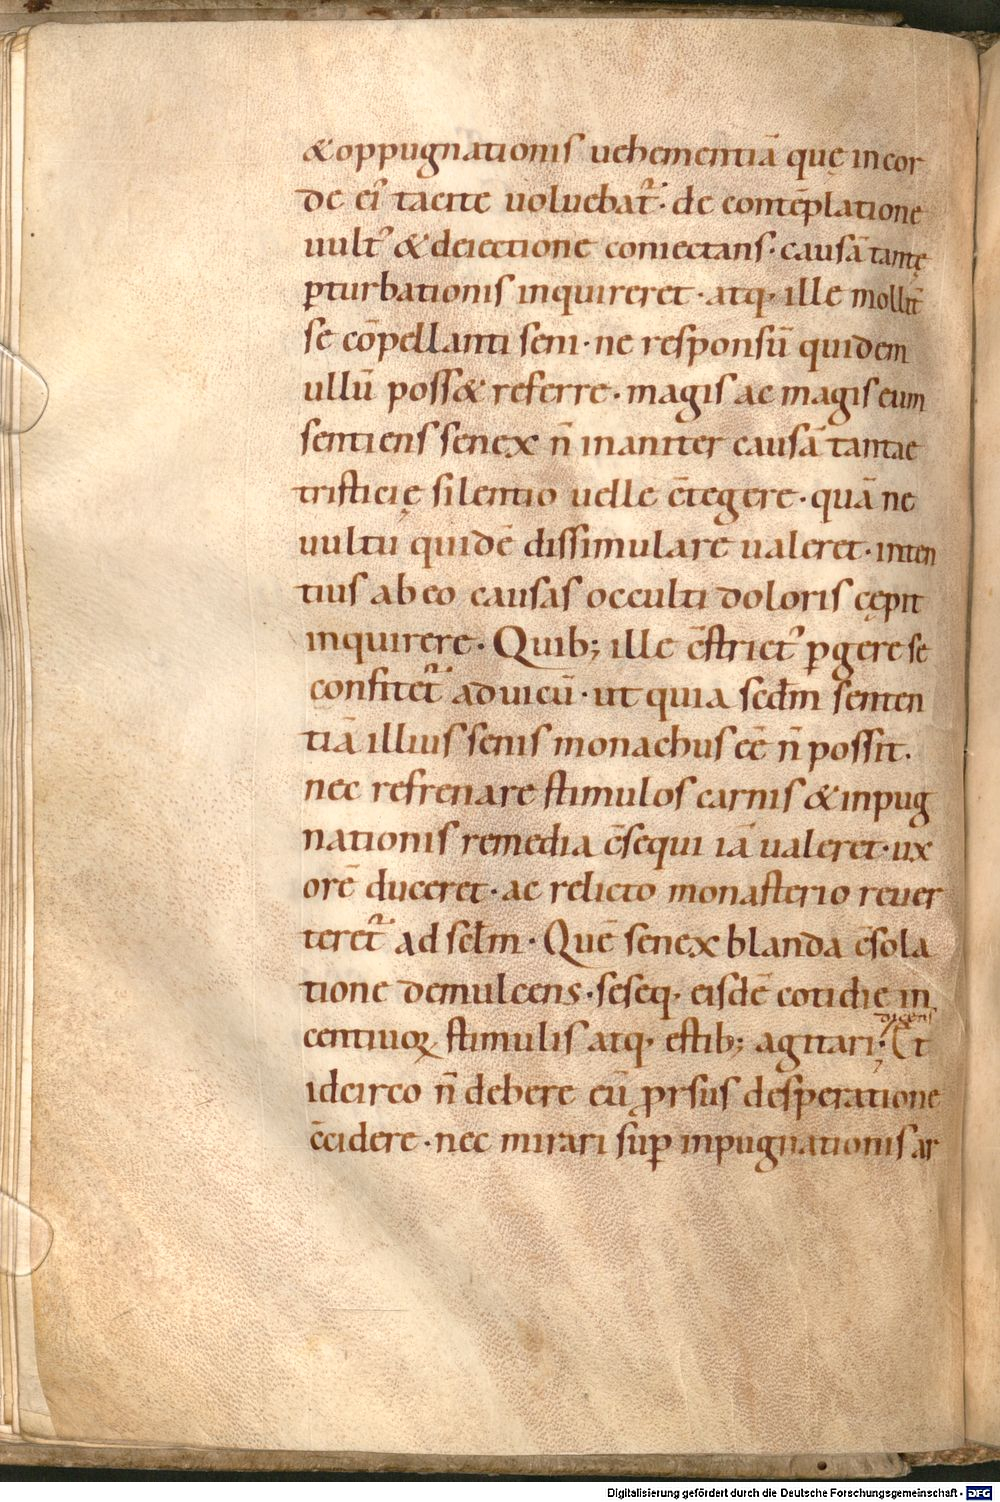 &oppugnationis uehementiā quę incor
de eiꝰ tacite uoluebat᷑· de contēplatione
uultꝰ & deiectione coniectans· causā tantę
ꝑturbationis inquireret· atq· ille mollit̄
se cōpellanti seni· ne responsū quidem
ullū poss& referre· magis ac magis eum
sentiens senex n̄ inaniter causā tantae
tristicię silentio uelle c̄tegere· quā ne
uultu quidē dissimulare ualeret· inten
tius ab eo causas occulti doloris cępit
inquirere· Quib; ille c̄strictꝰ ꝑgere se
confitet᷑ ad uicū· ut quia scd̄m senten
tiā illius senis monachus eē n̄ possit·
nec refrenare stimulos carnis & inpug
nationis remedia c̄sequi iā ualeret· ux
orē duceret· ac relicto monasterio reuer
teret᷑ ad scl̄m· Quē senex blanda c̄sola
tione demulcens· seseq· eisdē cotidie in
dicens
centiuoꝝ stimulis atq· estib; agitari; Et
idcirco n̄ debere eū prorsus desperatione
c̄cidere· nec mirari suꝑ inpugnationis ar
Digitalisierung gefördert durch die Deutsche Forschungsgemeinschaft - DFG